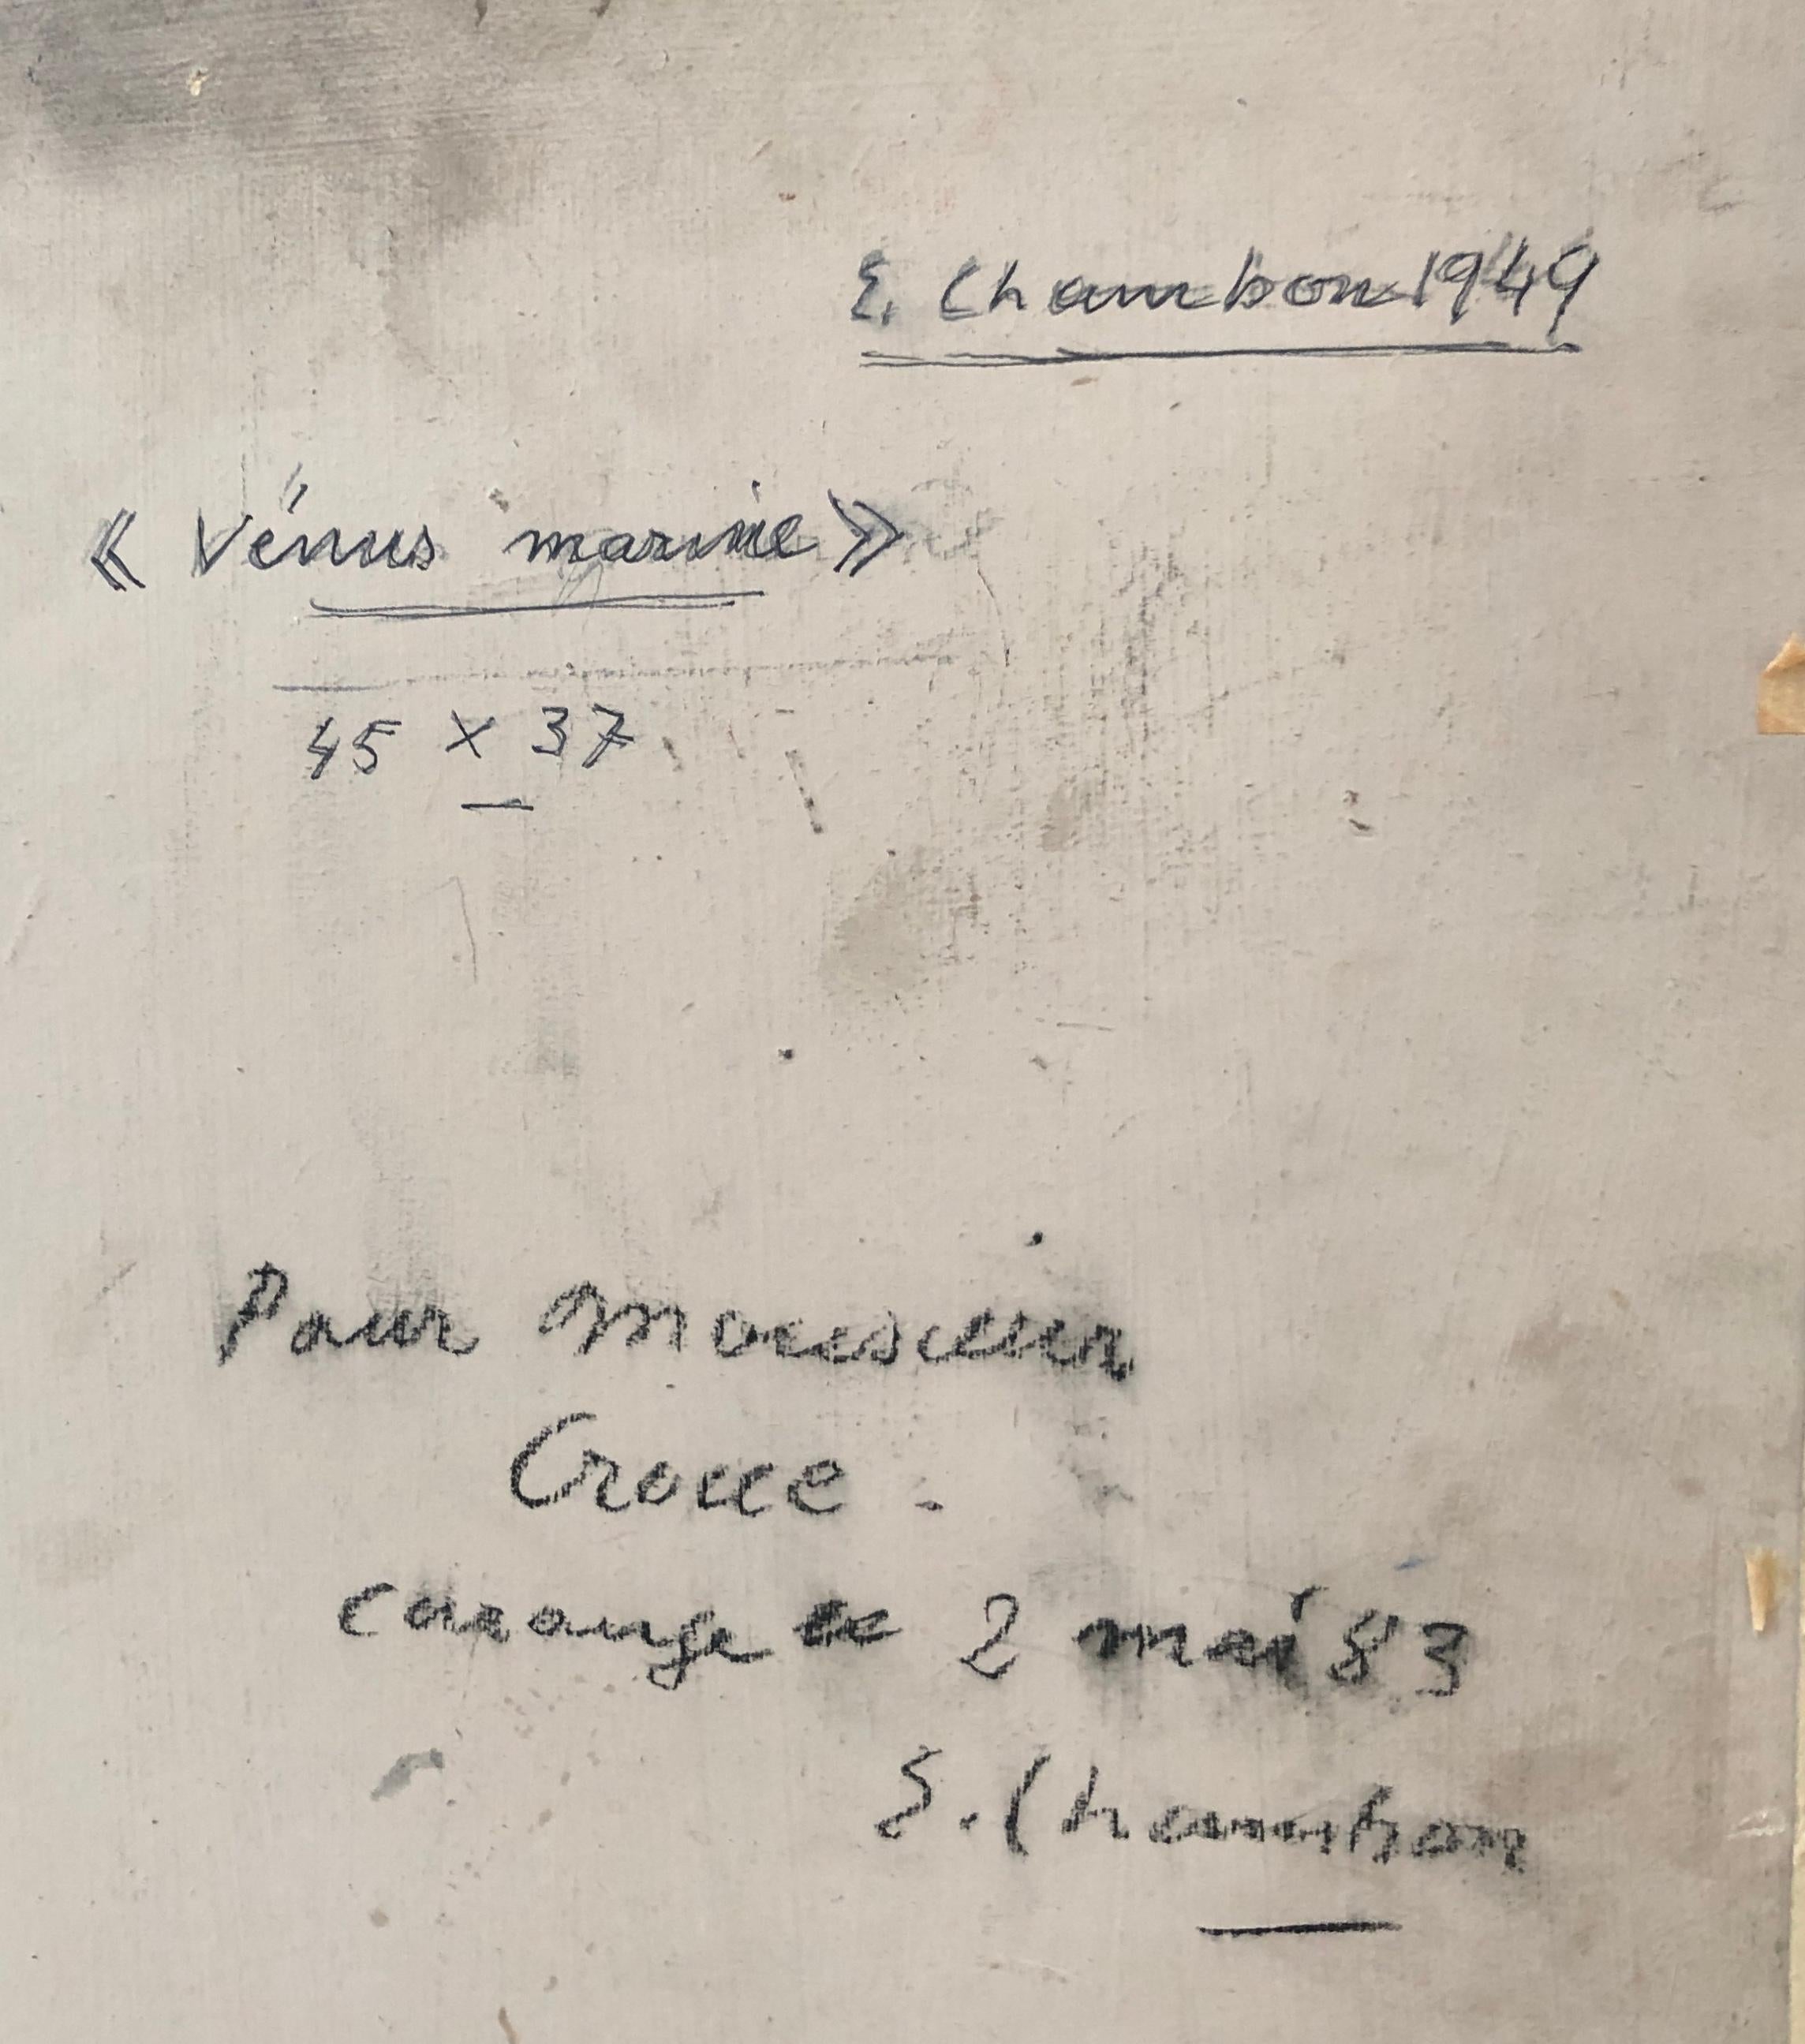 E. Chambon 1949
« Vénus marine »
45 x 37
Pour Monsieur
Crouce.
Carouge le 2 mai 83
E. Chambon